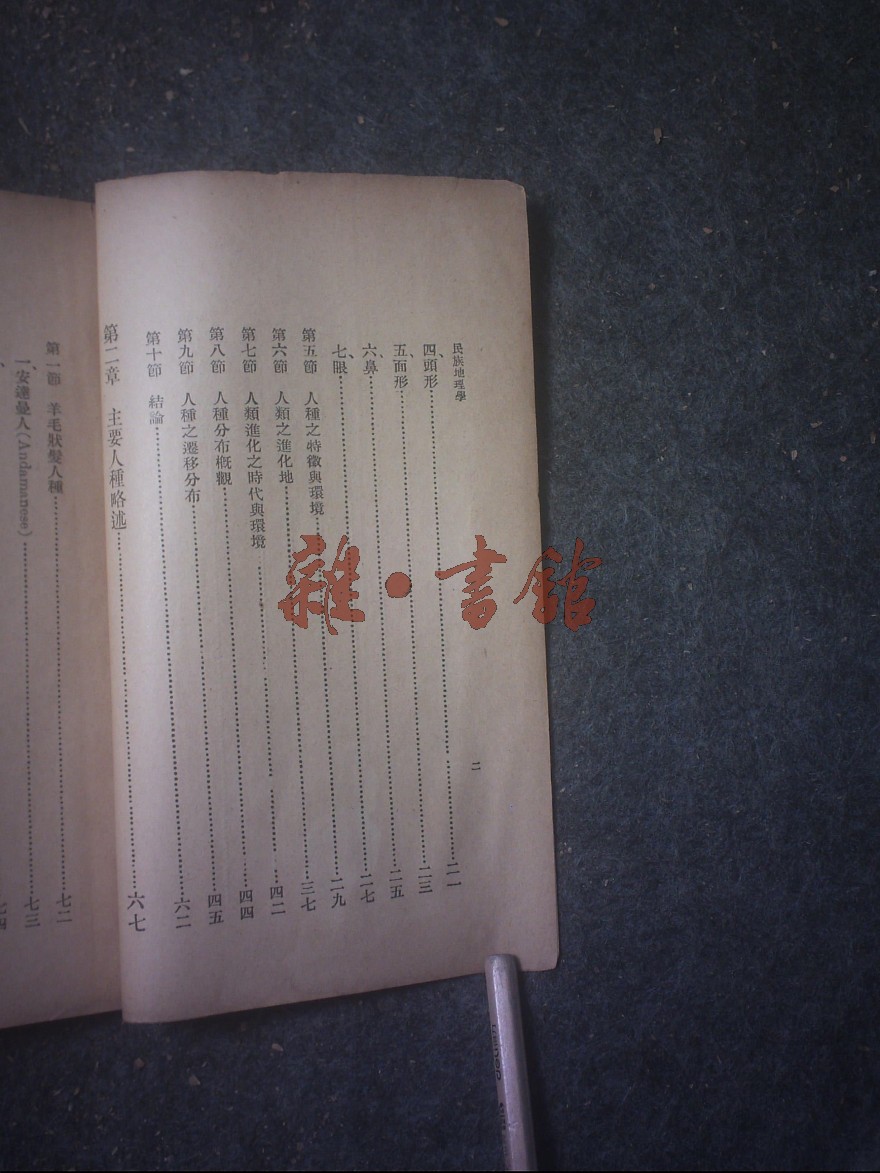 民族地理學 二
四、頭形……二一
五、面形……二三
六、鼻……二五
七、眼……二七
第五節 人種之特徵與環境……二九
第六節 人類之進化地……三七
第七節 人類進化之時代與環境……四二
第八節 人種分布概觀……四四
第九節 人種之遷移分布……四五
第十節 結論……六二
第二章 主要人種略述……六七
第一節 羊毛狀髮人種……七二
一、安達曼人(Andamanese)……七三
七四
雜·書館